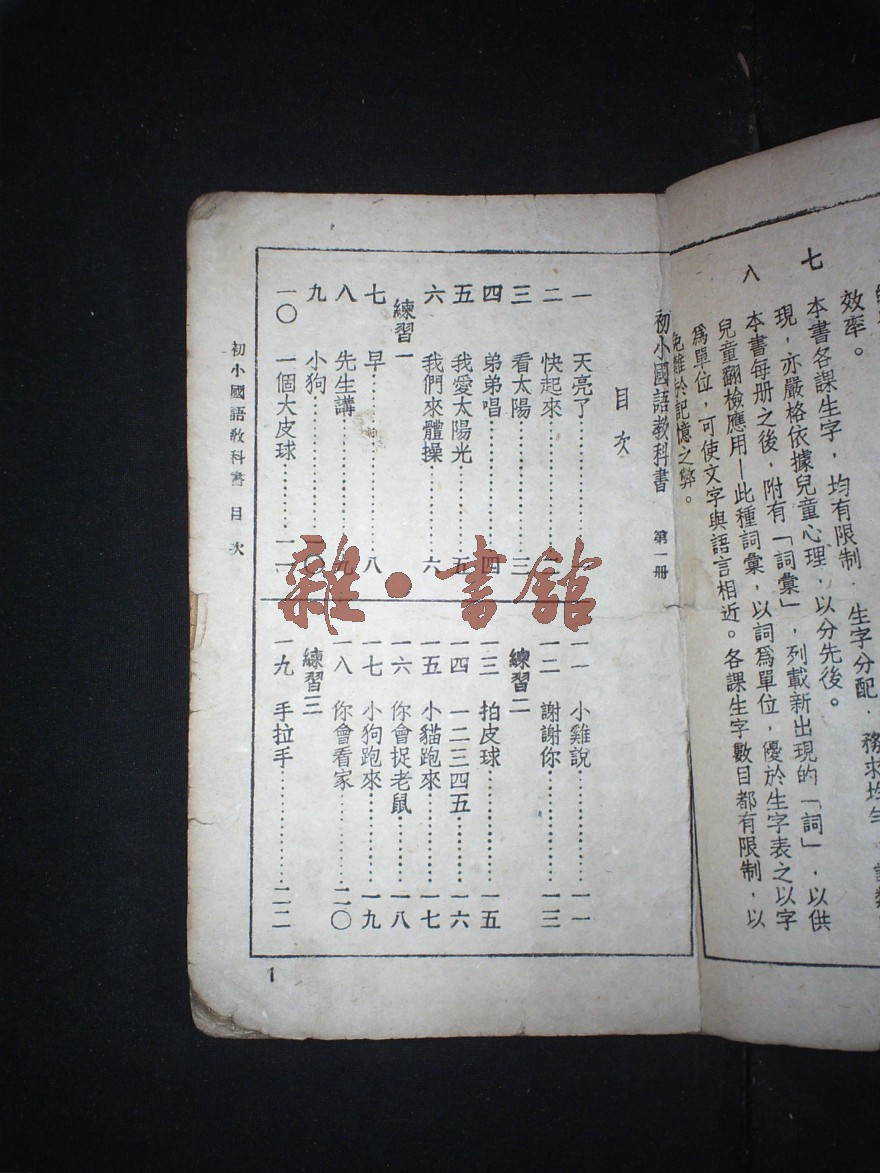 效率。
七 本書各課生字，均有限制．生字分配．務求均
現，亦嚴格依據兒童心理，以分先後。
八 本書每册之後，附有「詞彙」，列載新出現的「詞」，以供
兒童翻檢應用—此種詞彙，以詞爲單位，優於生字表之以字
爲單位，可使文字與語言相近。各課生字數目都有限制，以
免難於記憶之弊。
初小國語教科書 第一册
目次
一 天亮了
二 快起來
三 看太陽……三
四 弟弟唱……四
五 我愛太陽光……五
六 我們來體操……六
練習一
七 早……八
八 先生講……九
九 小狗
一〇 一個大皮球……一一
一一 小雞說……一一
一二 謝謝你……一三
練習二
一三 拍皮球……一五
一四 一二三四五……一六
一五 小貓跑來……一七
一六 你會捉老鼠……一八
一七 小狗跑來……一九
一八 你會看家……二〇
練習三
一九 手拉手……二二
初小國語教科書 目次
1
雜·書館